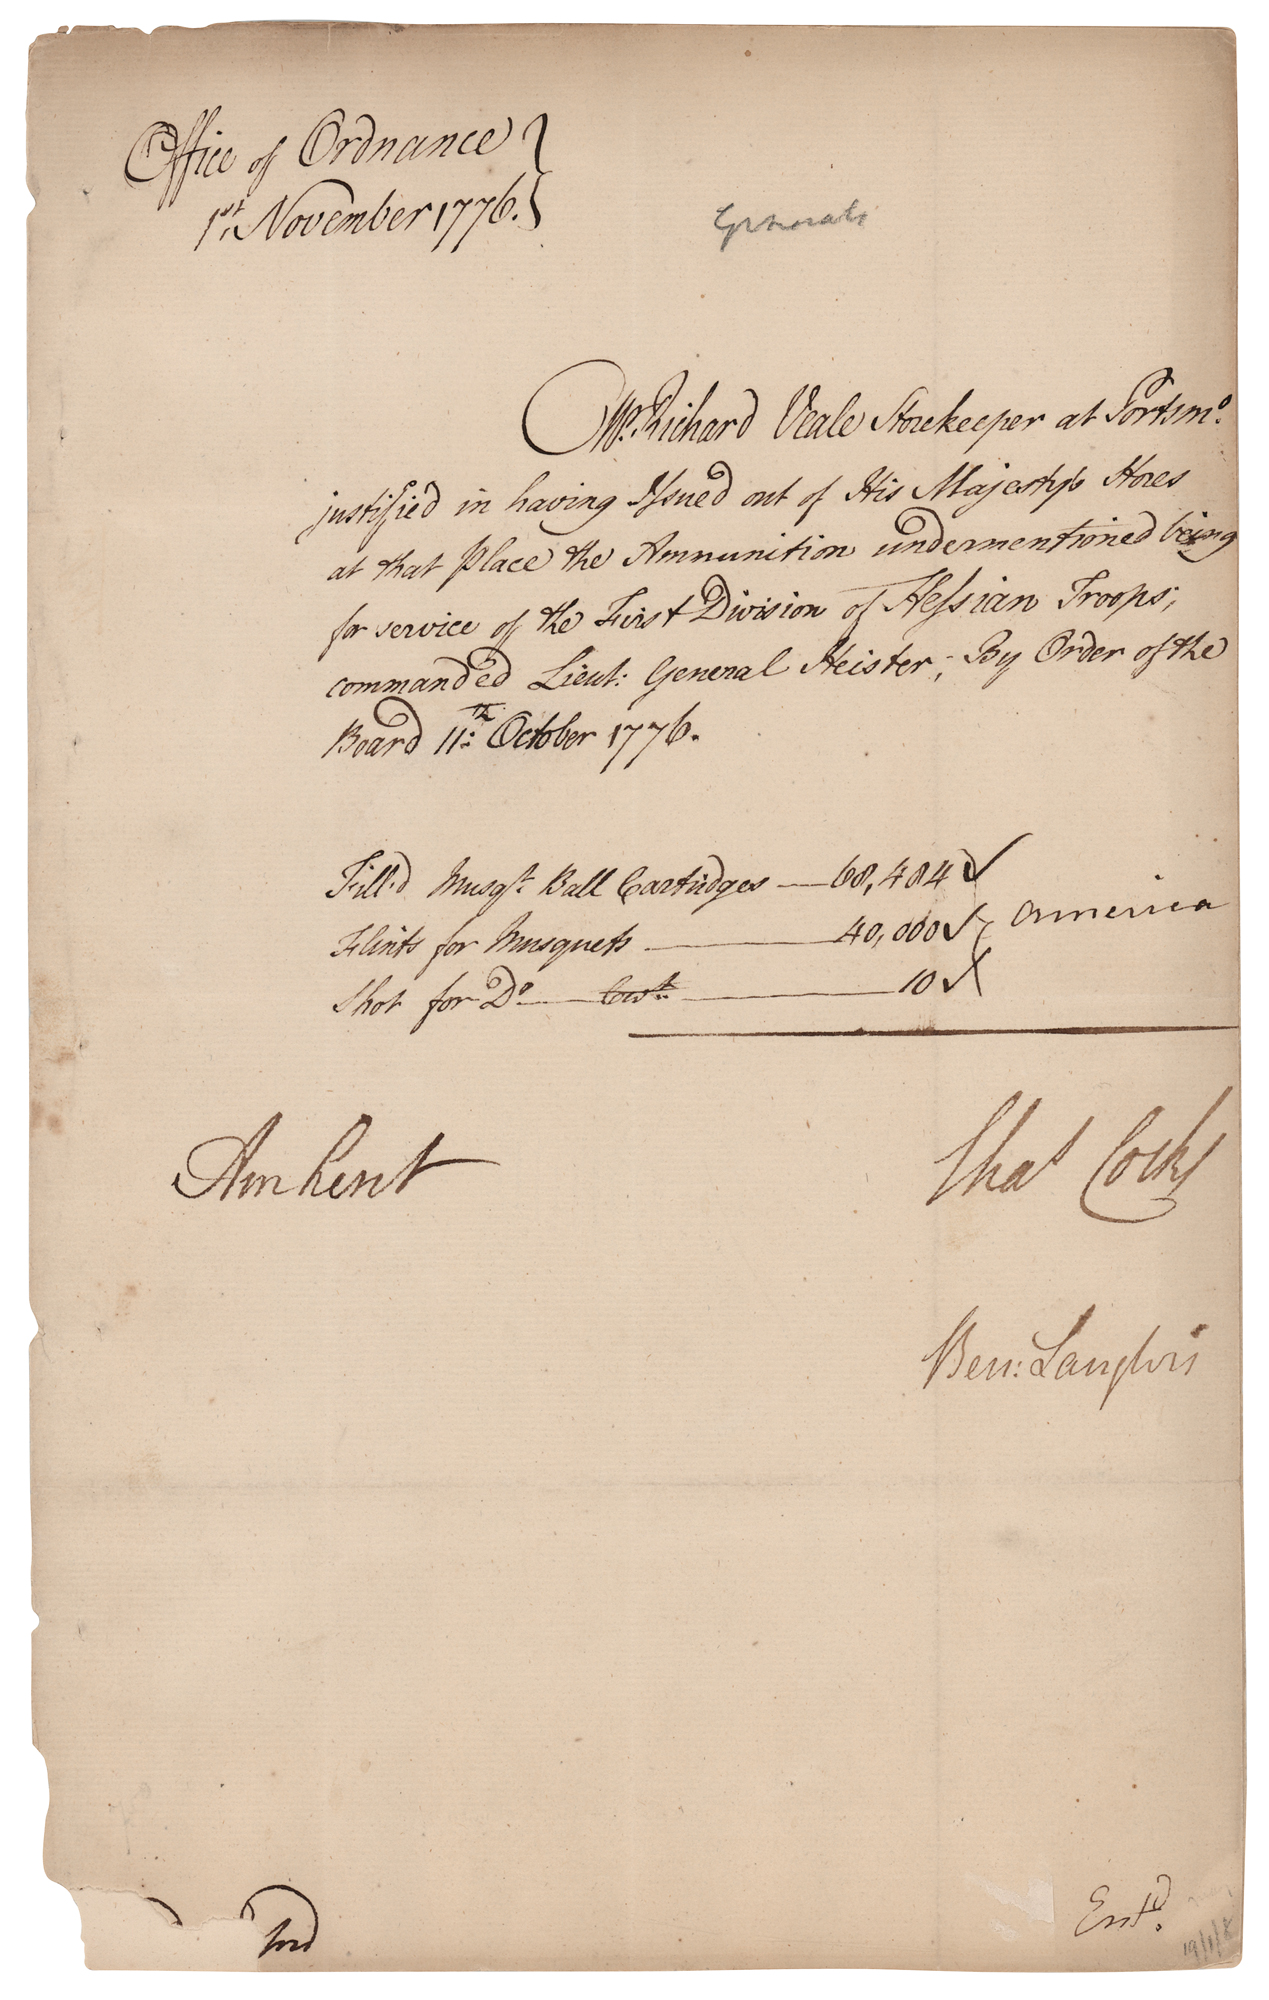 Office of Ordnance }
1st. November 1776. }
Generals
Mr. Richard Veale Storekeeper at Portsmo.
justified in having Issued out of His Majestys Stores
at that Place the Ammunition undermentioned being
for service of the First Division of Hessian Troops;
commanded Lieut: General Heister; By Order of the
Board 11th: October 1776.
Fill'd Musqt. Ball Cartridges — 68,484 ✓
Flints for Musquets — 40,000 ✓ } America
Shot for Do — Cwt. — 10 ✓
Amherst
Chas Cocks
Ben: Langlois
Entd.
19/1/8